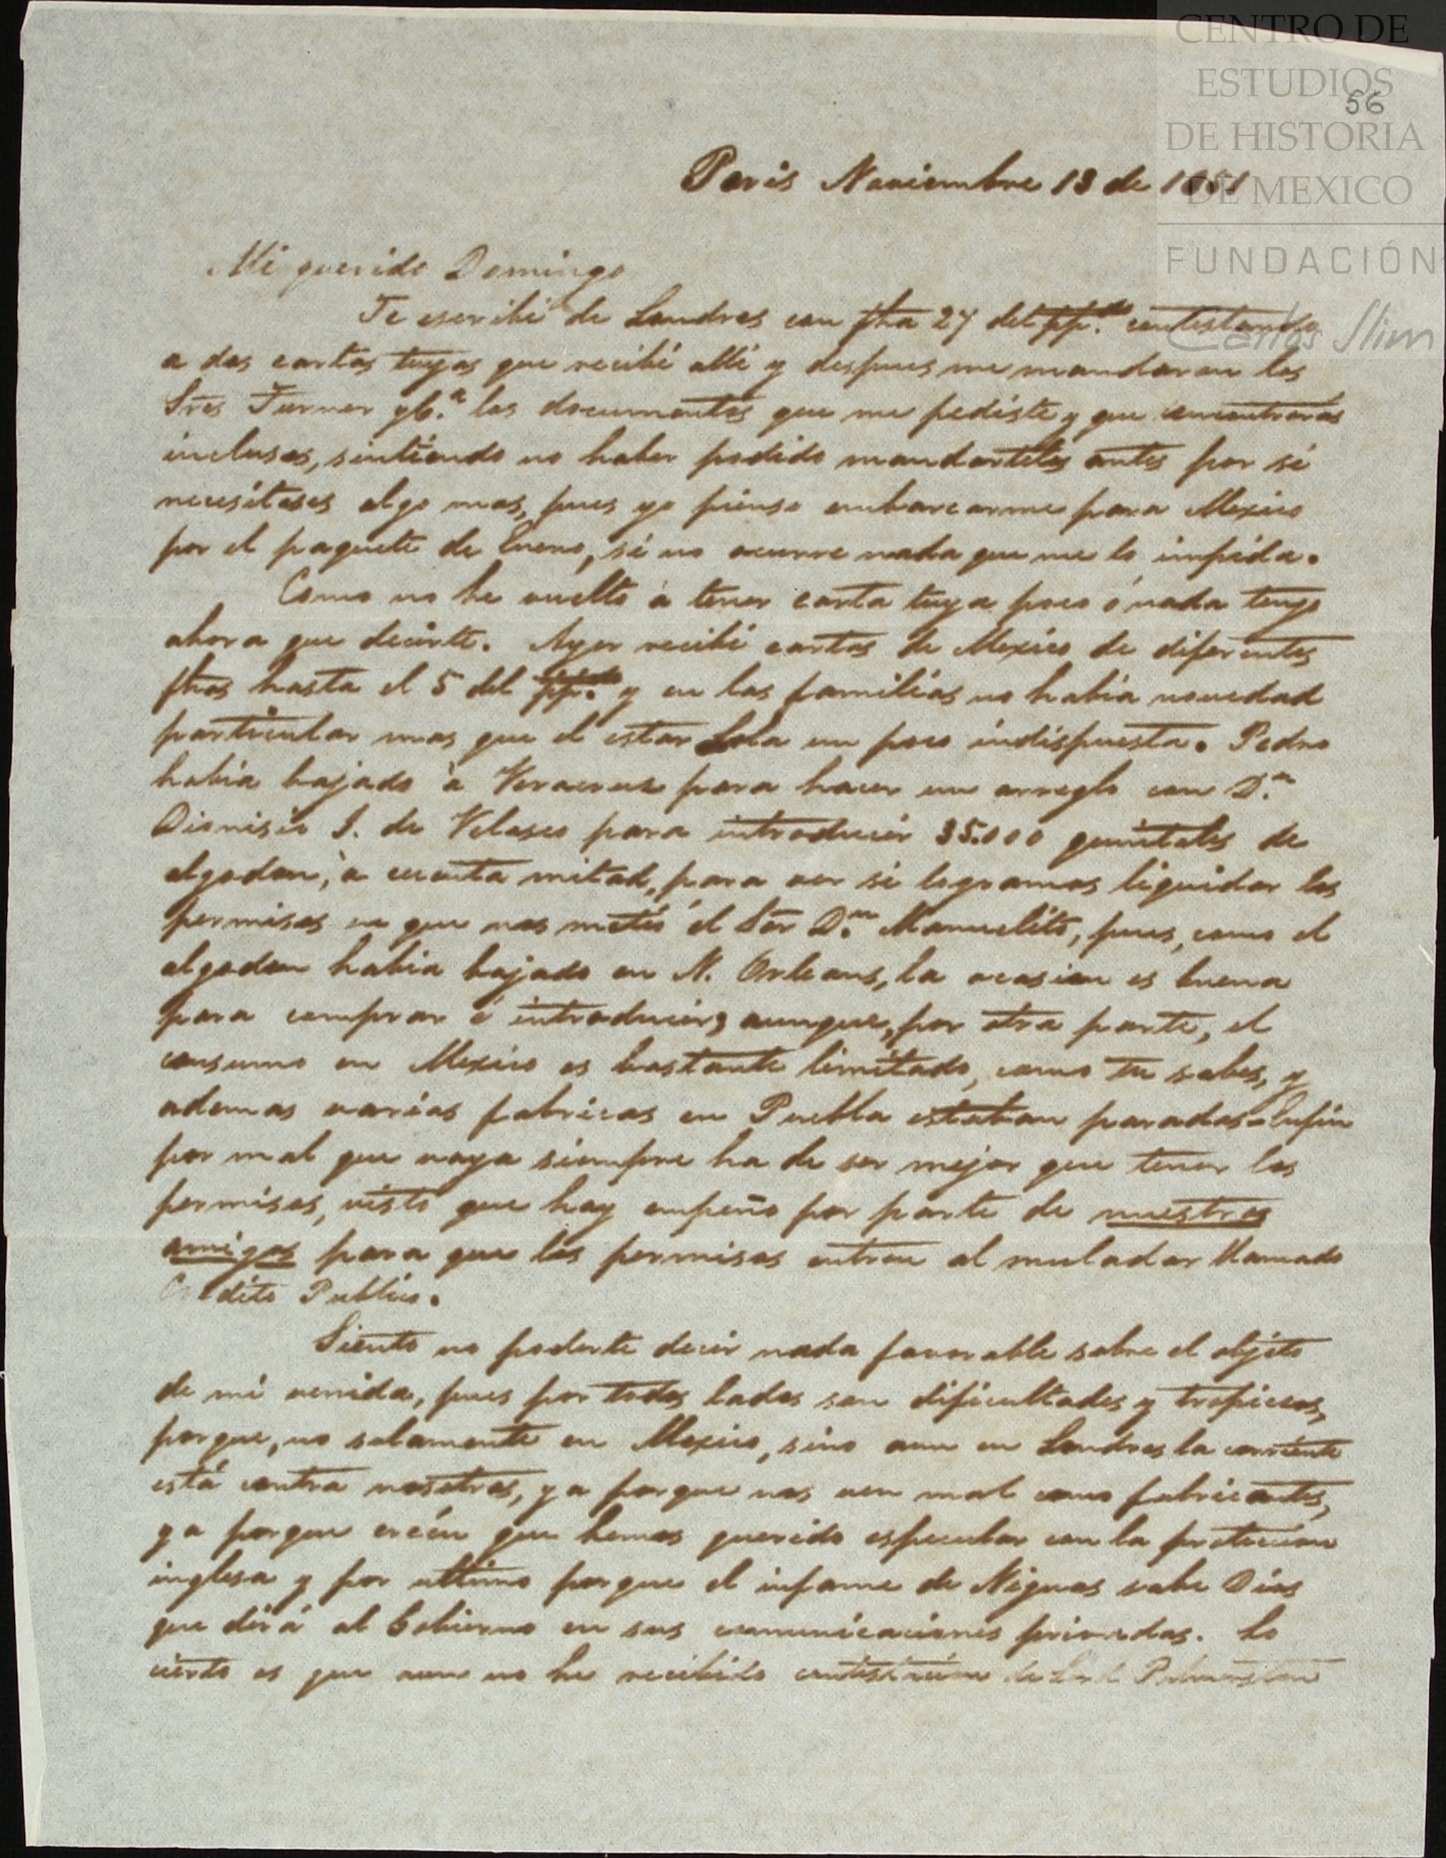 CENTRO DE
ESTUDIOS
DE HISTORIA
DE MEXICO
FUNDACIÓN
Carlos Slim
56
Paris Noviembre 13 de 1851
Mi querido Domingo
Te escribí de Londres con fha 27 del pp.do contestando
a dos cartas tuyas que recibí allí y despues me mandaron los
Sres Turner y C.a los documentos que me pediste y que encontraras
inclusos, sintiendo no haber podido mandartelos antes por si
necesitases algo mas, pues yo pienso embarcarme para Mexico
por el paquete de Enero, si no ocurre nada que me lo impida.
Como no he vuelto à tener carta tuya poco ó nada tengo
ahora que decirte. Ayer recibí cartas de Mexico de diferentes
fhas hasta el 5 del pp.do y en las familias no habia novedad
particular mas que el estar Lola un poco indispuesta. Pedro
habia bajado à Veracruz para hacer un arreglo con D.n
Dionisio J. de Velasco para introducir 35.000 quintales de
algodon, à cuenta mitad, para ver si logramos liquidar los
permisos en que nos metió el Sor D.n Manuelito, pues, como el
algodon habia bajado en N. Orleans, la ocasion es buena
para comprar é introducir, aunque, por otra parte, el
consumo en Mexico es bastante limitado, como tu sabes, y
ademas varias fabricas en Puebla estaban paradas. Enfin
por mal que vaya siempre ha de ser mejor que tener los
permisos, visto que hay empeño por parte de nuestros
amigos para que los permisos entren al muladar llamado
Credito Publico.
Siento no poderte decir nada favorable sobre el objeto
de mi venida, pues por todos lados son dificultades y tropiezos,
porque, no solamente en Mexico, sino aun en Londres la corriente
está contra nosotros, ya porque nos ven mal como fabricantes,
ya porque creén que hemos querido especular con la proteccion
inglesa y por ultimo porque el infame de Niguas sabe Dios
que dirá al Gobierno en sus comunicaciones privadas. Lo
cierto es que aun no he recibido contestacion de Lord Palmerston